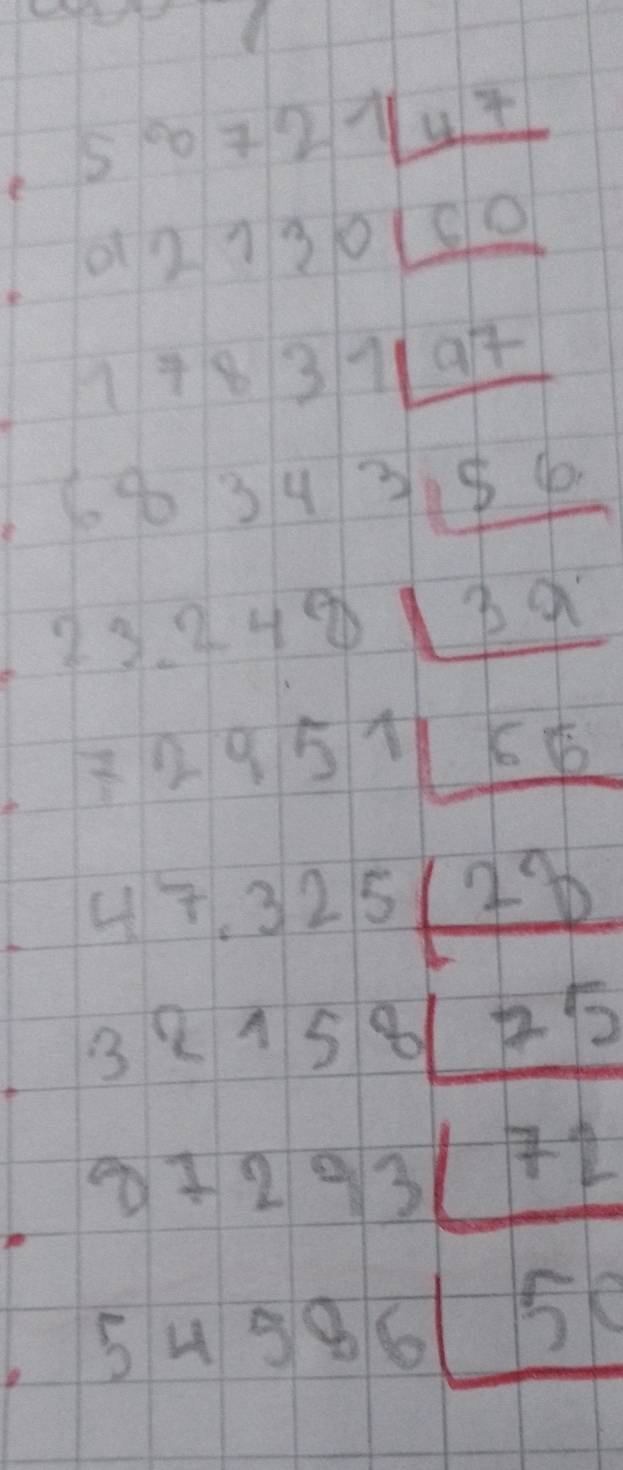 58721 47
92130 60
17831 97
68343 56
23.248 39
72951 66
47.325 28
32158 75
87293 72
54986 50